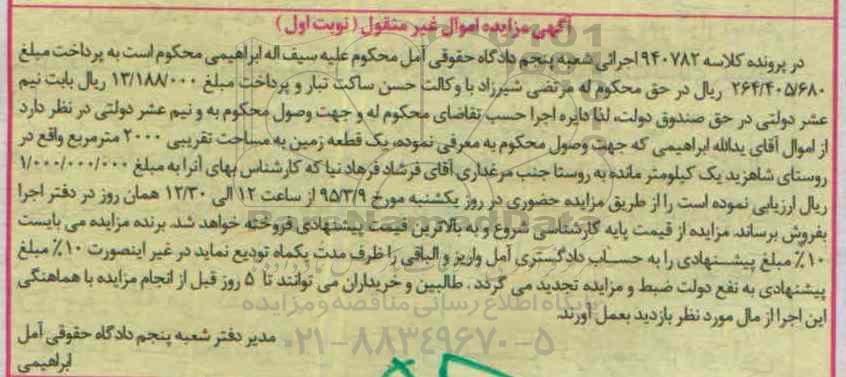 آگهی مزایده اموال غیر منقول (نوبت اول)
در پرونده کلاسه ۹۴۰۷۸۲ اجرائی شعبه پنجم دادگاه حقوقی آمل محکوم علیه سیف اله ابراهیمی محکوم است به پرداخت مبلغ
۲۶۴/۴۰۵/۶۸۰ ریال در حق محکوم له مرتضی شیرزاد با وکالت حسن ساکت تبار و پرداخت مبلغ ۱۳/۱۸۸/۰۰۰ ریال بابت نیم
عشر دولتی در حق صندوق دولت، لذا دایره اجرا حسب تقاضای محکوم له و جهت وصول محکوم به و نیم عشر دولتی در نظر دارد
از اموال آقای یدالله ابراهیمی که جهت وصول محکوم به معرفی نموده، یک قطعه زمین به مساحت تقریبی ۲۰۰۰ مترمربع واقع در
روستای شاهزید یک کیلومتر مانده به روستا جنب مرغداری آقای فرشاد فرهادنیا که کارشناس بهای آنرا به مبلغ ۱/۰۰۰/۰۰۰/۰۰۰
ریال ارزیابی نموده است را از طریق مزایده حضوری در روز یکشنبه مورخ ۹۵/۳/۹ از ساعت ۱۲ الی ۱۲/۳۰ همان روز در دفتر اجرا
بفروش برساند. مزایده از قیمت پایه کارشناسی شروع و به بالاترین قیمت پیشنهادی فروخته خواهد شد. برنده مزایده می بایست
۱۰٪ مبلغ پیشنهادی را به حساب دادگستری آمل واریز و الباقی را ظرف مدت یکماه تودیع نماید در غیر اینصورت ۱۰٪ مبلغ
پیشنهادی به نفع دولت ضبط و مزایده تجدید می گردد. طالبین و خریداران می توانند تا ۵ روز قبل از انجام مزایده با هماهنگی
این اجرا از مال مورد نظر بازدید بعمل آورند.
مدیر دفتر شعبه پنجم دادگاه حقوقی آمل
ابراهیمی
ParsNamadData
پایگاه اطلاع رسانی مناقصه و مزایده
۰۲۱-۸۸۳۴۹۶۷۰-۵